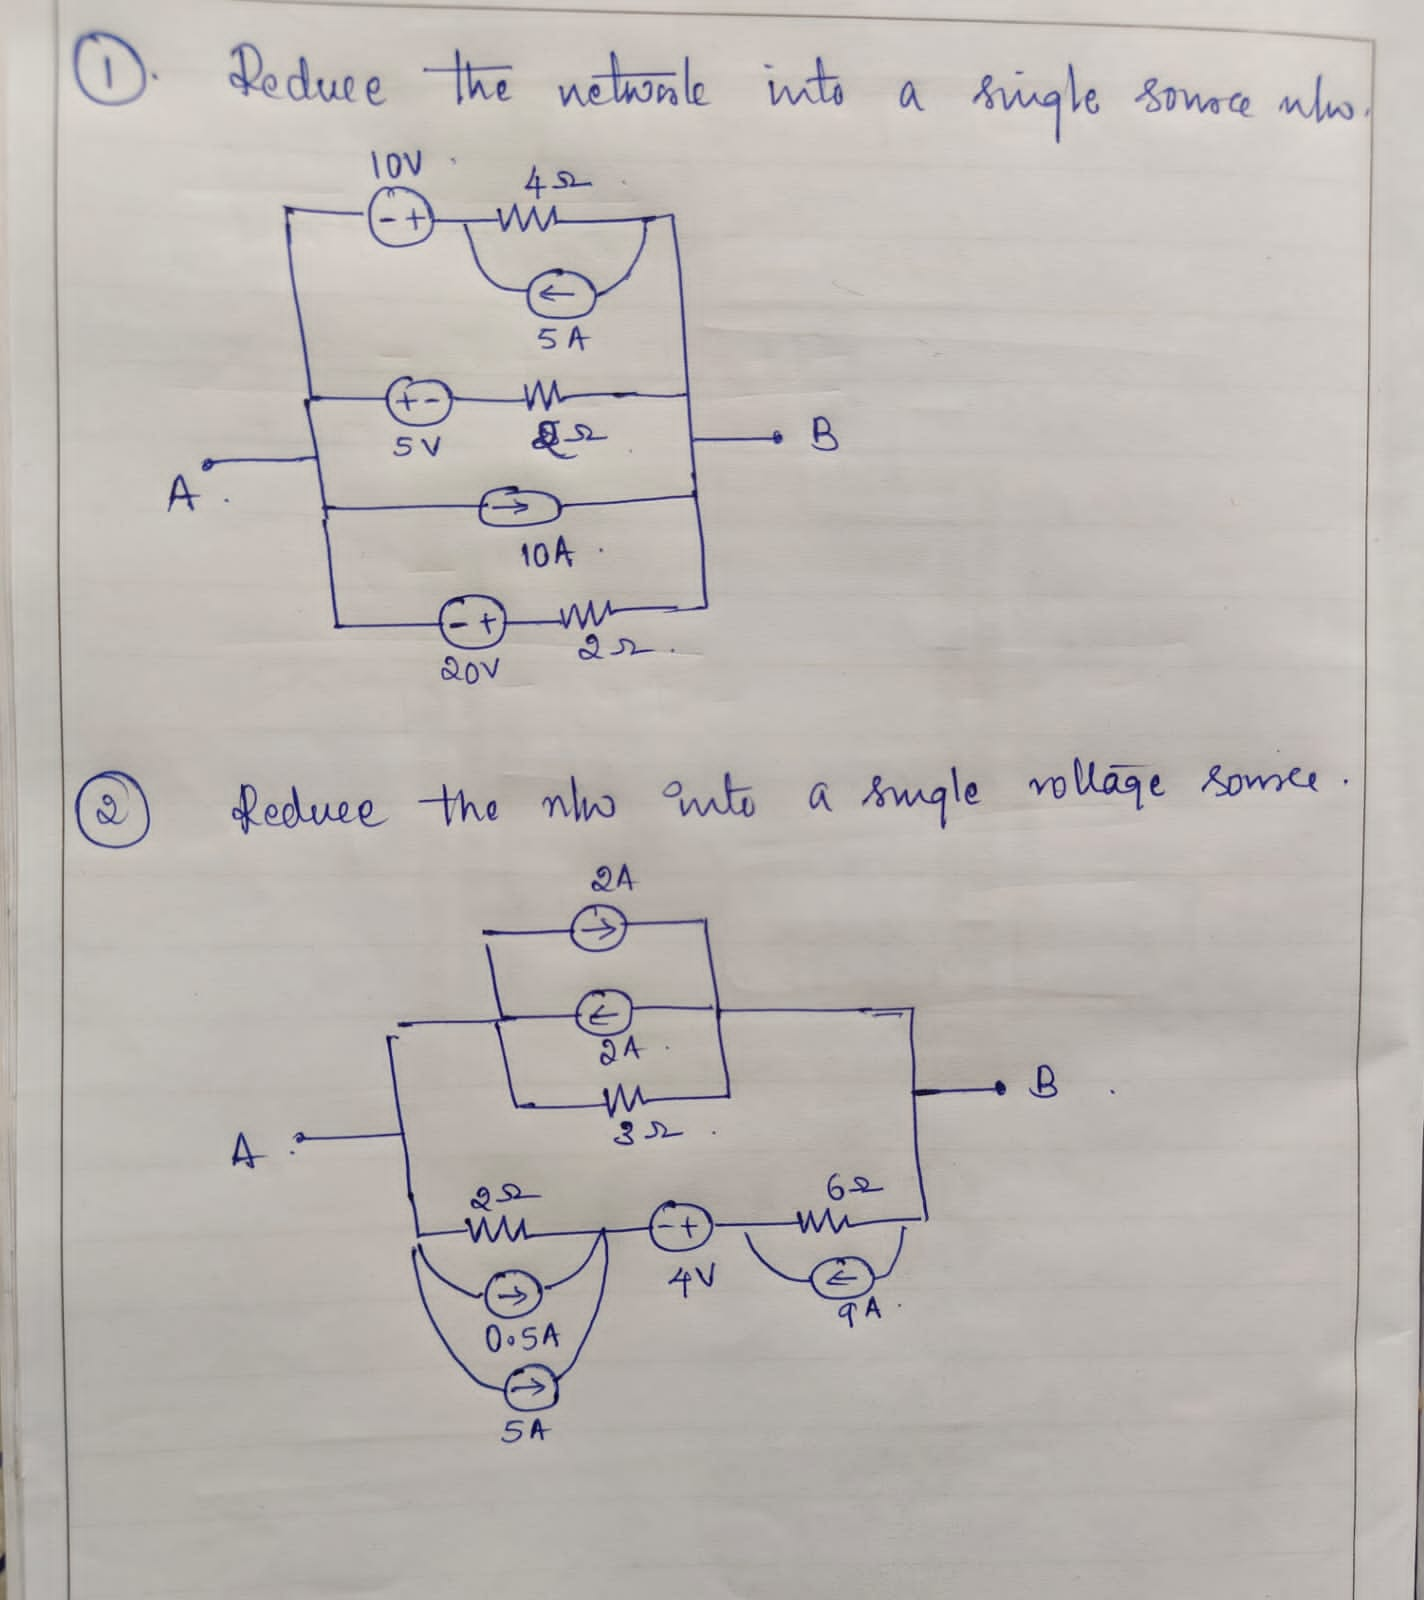 1. Reduce the network into a single source n/w.
10V
4Ω
- +
←
5A
+ -
5V
Ω
B
A
→
10A
- +
20V
2Ω
2 Reduce the n/w into a single voltage source.
2A
→
←
2A
3Ω
B
A
2Ω
6Ω
- +
4V
→
0.5A
←
9A
→
5A